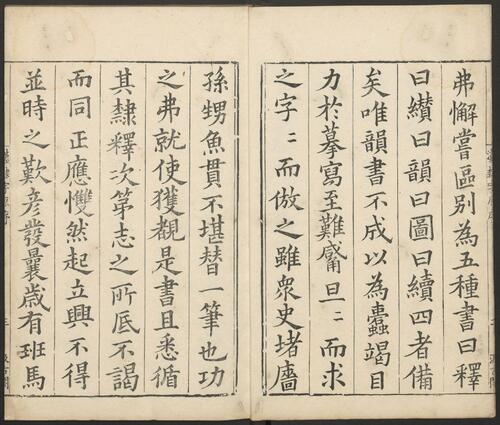 弗懈嘗區別為五種書曰釋
曰纉曰韻曰圖曰續四者備
矣唯韻書不成以為蠹竭目
力於摹寫至難旦〻而求
之字〻而倣之雖衆史堵廧
孫甥魚貫不堪替一筆也功
之弗就使獲覩是書且悉循
其隸釋次第志之所底不謁
而同正應戄然起立興不得
並時之歎彦發曩歳有班馬